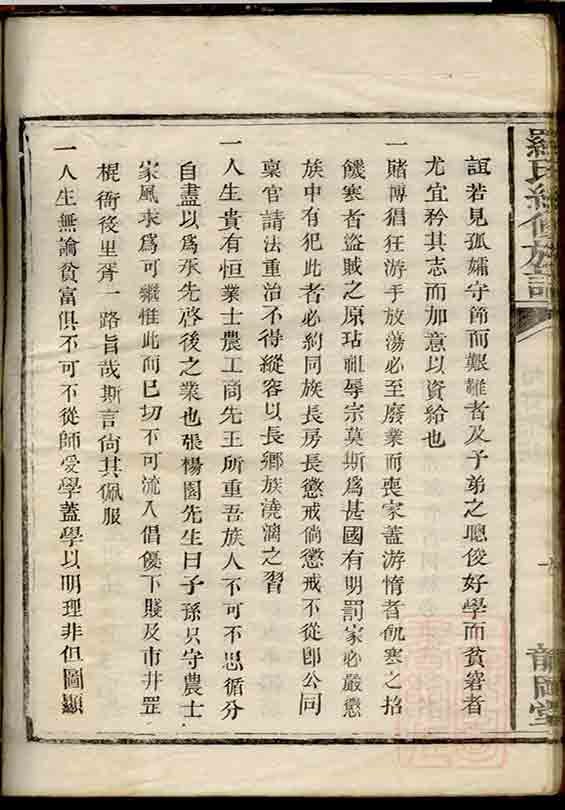 誼若見孤孀守節而艱難者及子弟之聰俊好學而貧窘者
尤宜矜其志而加意以資給也
一賭博猖狂游手放蕩必至廢業而喪家蓋游惰者飢寒之招
饑寒者盜賊之原玷祖辱宗莫斯爲甚國有明罰家必嚴懲
族中有犯此者必約同族長房長懲戒倘懲戒不從卽公同
稟官請法重治不得縱容以長鄉族澆漓之習
一人生貴有恒業士農工商先王所重吾族人不可不思循分
自盡以爲承先啓後之業也張楊園先生曰子孫只守農士
家風求爲可繼惟此而已切不可流入倡優下賤及市井罡
棍衙後里胥一路旨哉斯言尙其佩服
一人生無論貧富俱不可不從師受學蓋學以明理非但圖顯
龍岡堂